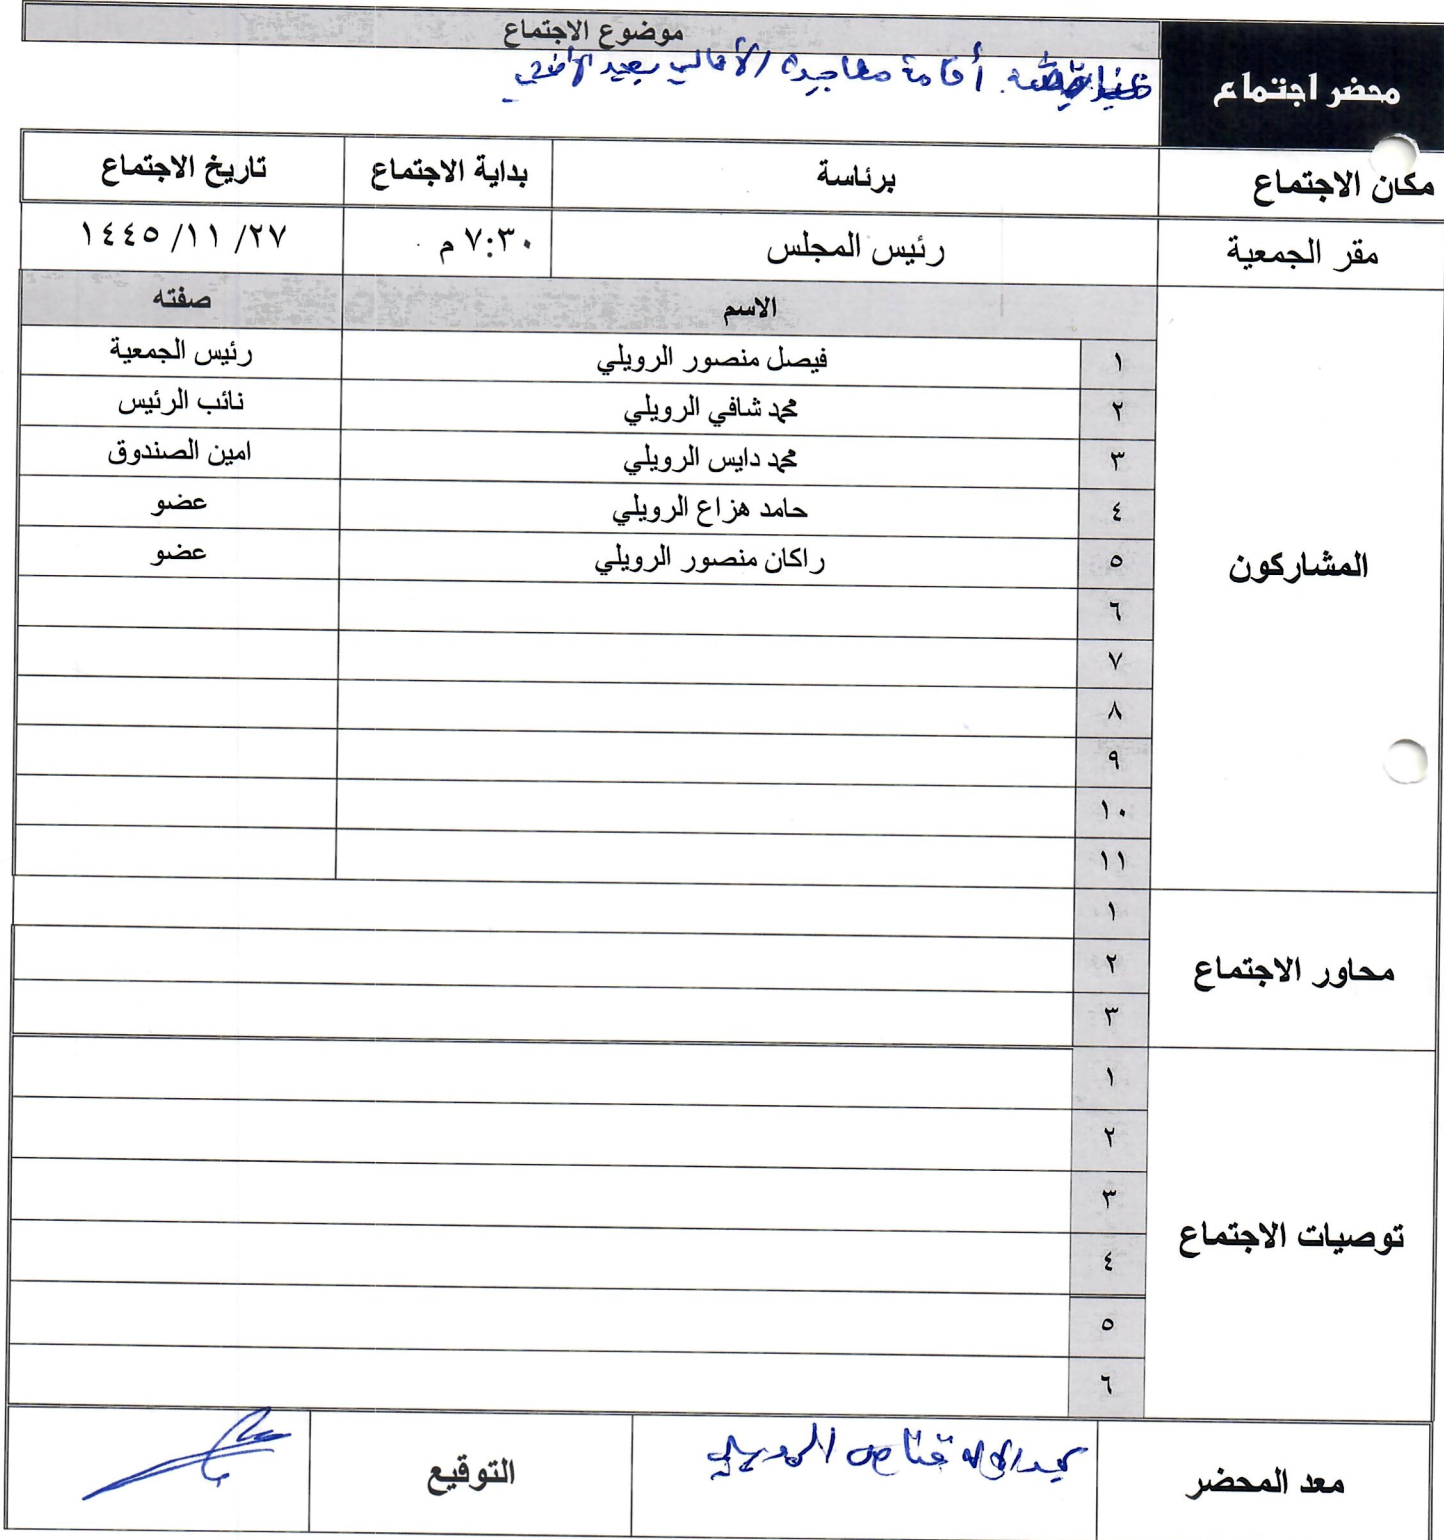 موضوع الاجتماع
محضر اجتماع
أقامة معايدة الأهالي بعيد الأضحى
مكان الاجتماع برئاسة بداية الاجتماع تاريخ الاجتماع
مقر الجمعية رئيس المجلس ٧:٣٠ م ٢٧/ ١١/ ١٤٤٥
المشاركون
الاسم صفته
١ فيصل منصور الرويلي رئيس الجمعية
٢ محمد شافي الرويلي نائب الرئيس
٣ محمد دايس الرويلي امين الصندوق
٤ حامد هزاع الرويلي عضو
٥ راكان منصور الرويلي عضو
٦
٧
٨
٩
١٠
١١
محاور الاجتماع
١
٢
٣
توصيات الاجتماع
١
٢
٣
٤
٥
٦
معد المحضر عبدالاله قناص الرويلي التوقيع